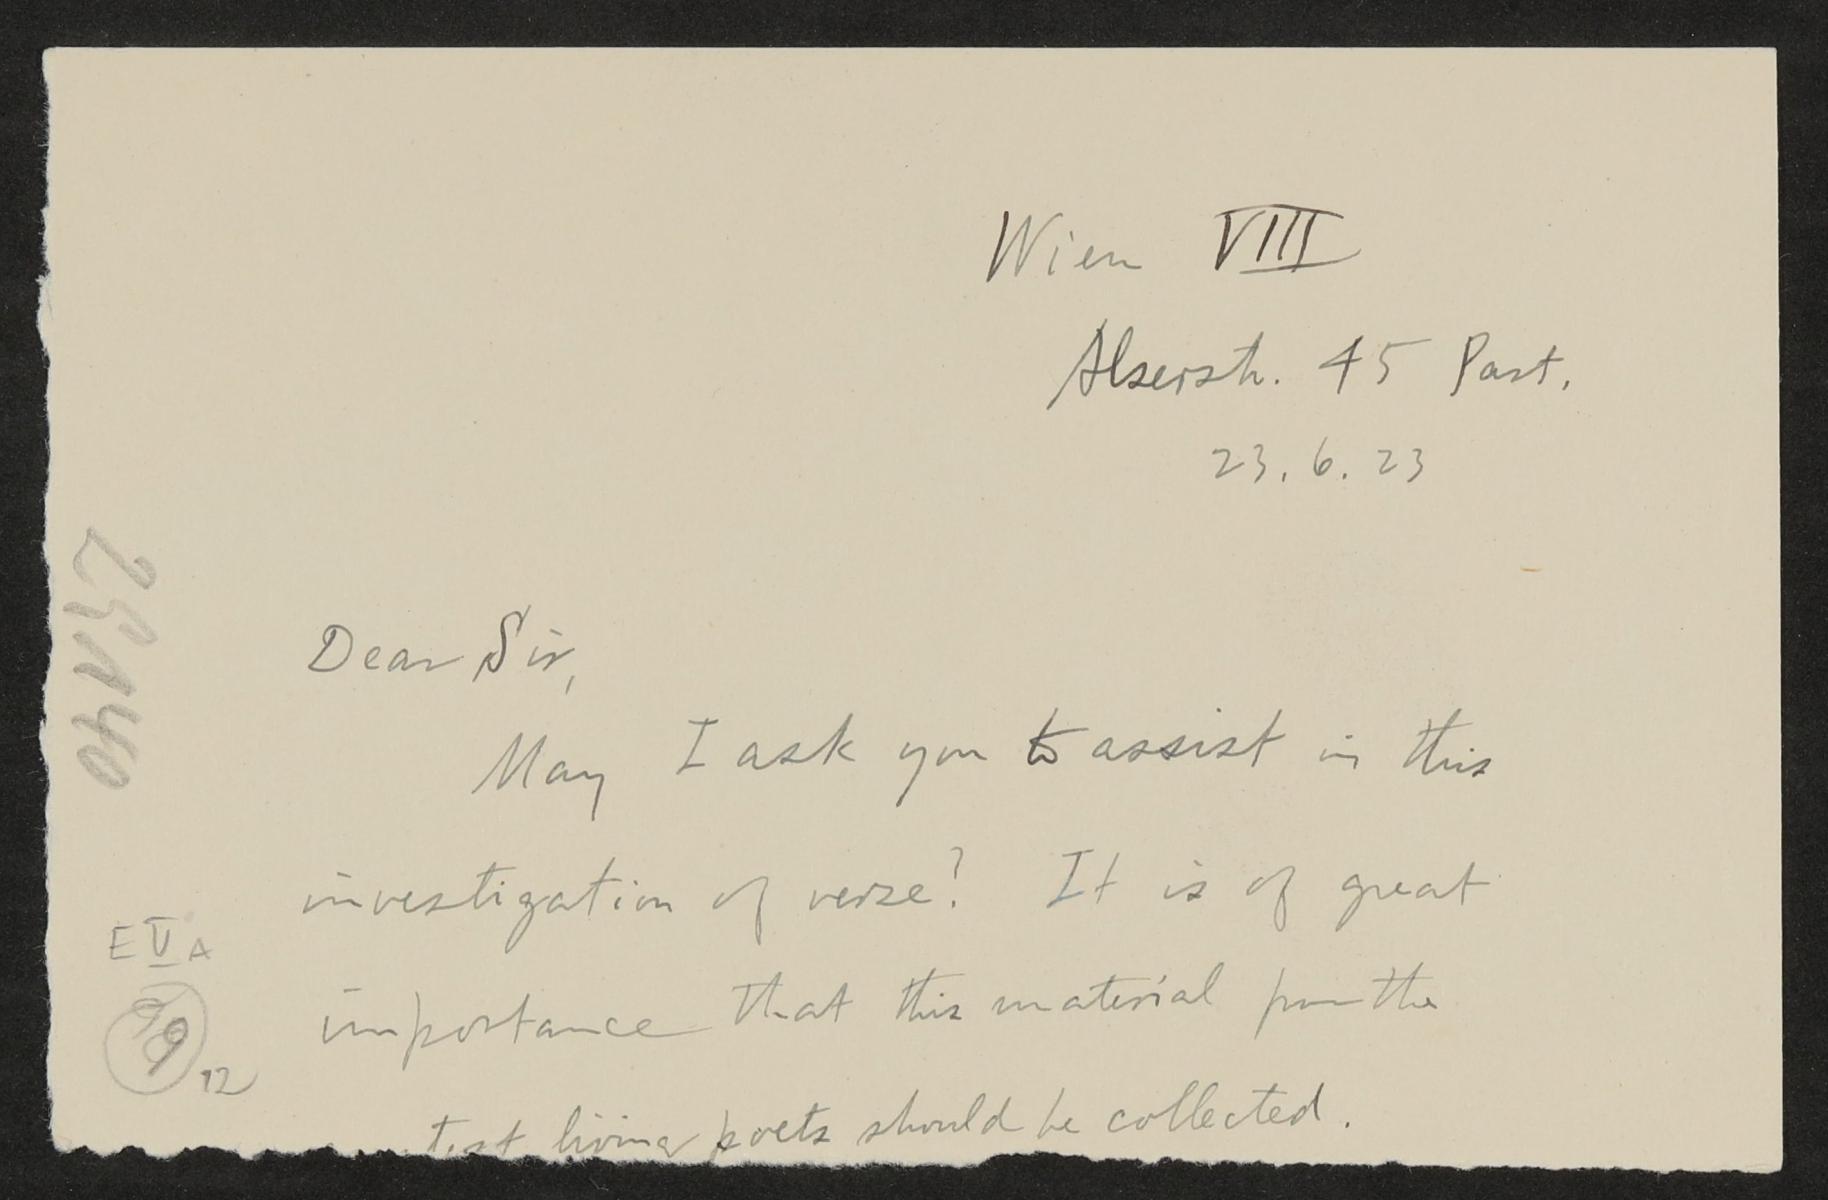 Wien VIII
Alserstr. 45 Part.
23.6.23
Dear Sir,
May I ask you to assist in this
investigation of verse? It is of great
importance that this material from the
test living poets should be collected.
25140
E V A
12